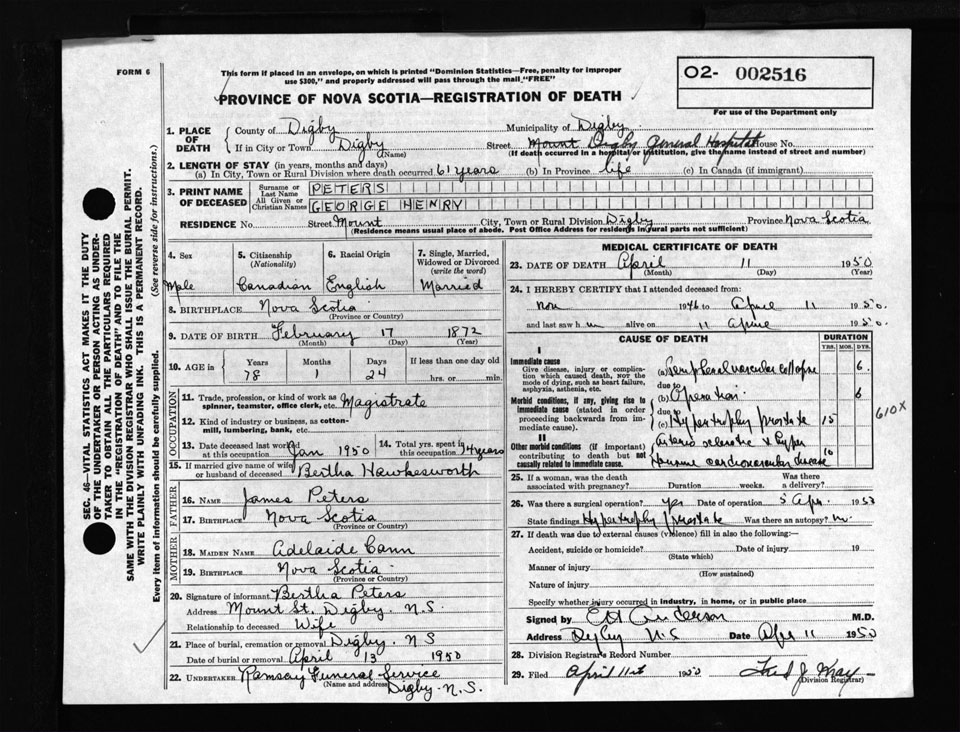 FORM 6
This form if placed in an envelope, on which is printed "Dominion Statistics—Free, penalty for improper
use $300," and properly addressed will pass through the mail "FREE"
O2- 002516
For use of the Department only
PROVINCE OF NOVA SCOTIA—REGISTRATION OF DEATH
SEC. 46—VITAL STATISTICS ACT MAKES IT THE DUTY
OF THE UNDERTAKER OR PERSON ACTING AS UNDER-
TAKER TO OBTAIN ALL THE PARTICULARS REQUIRED
IN THE "REGISTRATION OF DEATH" AND TO FILE THE
SAME WITH THE DIVISION REGISTRAR WHO SHALL ISSUE THE BURIAL PERMIT.
WRITE PLAINLY WITH UNFADING INK. THIS IS A PERMANENT RECORD.
Every item of information should be carefully supplied. (See reverse side for instructions.)
1. PLACE OF DEATH
County of Digby Municipality of Digby
If in City or Town Digby (Name) Street Mount Digby General Hospital House No.
(If death occurred in a hospital or institution, give the name instead of street and number)
2. LENGTH OF STAY (in years, months and days)
(a) In City, Town or Rural Division where death occurred 61 years (b) In Province life (c) In Canada (if immigrant)
3. PRINT NAME OF DECEASED
Surname or Last Name PETERS
All Given or Christian Names GEORGE HENRY
RESIDENCE No. Street Mount City, Town or Rural Division Digby Province Nova Scotia
(Residence means usual place of abode. Post Office Address for residents in rural parts not sufficient)
4. Sex Male
5. Citizenship (Nationality) Canadian
6. Racial Origin English
7. Single, Married, Widowed or Divorced (write the word) Married
8. BIRTHPLACE Nova Scotia
(Province or Country)
9. DATE OF BIRTH February 17 1872
(Month) (Day) (Year)
10. AGE in Years Months Days If less than one day old
78 1 24 hrs. or min.
OCCUPATION
11. Trade, profession, or kind of work as spinner, teamster, office clerk, etc. Magistrate
12. Kind of industry or business, as cotton-mill, lumbering, bank, etc.
13. Date deceased last worked at this occupation Jan 1950
14. Total yrs. spent in this occupation 14 years
15. If married give name of wife or husband of deceased Bertha Hawkesworth
FATHER
16. Name James Peters
17. Birthplace Nova Scotia
(Province or Country)
MOTHER
18. Maiden Name Adelaide Cann
19. Birthplace Nova Scotia
(Province or Country)
20. Signature of informant Bertha Peters
Address Mount St. Digby. N.S.
Relationship to deceased Wife
21. Place of burial, cremation or removal Digby. N S
Date of burial or removal April 13 1950
22. Undertaker Ramsay Funeral Service
(Name and address) Digby. N.S.
MEDICAL CERTIFICATE OF DEATH
23. DATE OF DEATH April 11 1950
(Month) (Day) (Year)
24. I HEREBY CERTIFY that I attended deceased from:
nov 1946 to April 11 1950.
and last saw h im alive on 11 April 1950.
CAUSE OF DEATH
DURATION
YRS. MOS. DYS.
I
Immediate cause
Give disease, injury or complication which caused death, not the mode of dying, such as heart failure, asphyxia, asthenia, etc.
(a) Peripheral vascular collapse 6.
due to
Morbid conditions, if any, giving rise to immediate cause (stated in order proceeding backwards from immediate cause).
(b) Operation. 6
due to
(c) Hypertrophy prostate 15
610X
II
Other morbid conditions (if important) contributing to death but not causally related to immediate cause.
cardiovascular disease 10
25. If a woman, was the death associated with pregnancy? Duration weeks. Was there a delivery?
26. Was there a surgical operation? yes Date of operation 5 Apr. 1950
State findings Hypertrophy prostate Was there an autopsy? no
27. If death was due to external causes (violence) fill in also the following:—
Accident, suicide or homicide? Date of injury 19
(State which)
Manner of injury
(How sustained)
Nature of injury
Specify whether injury occurred in industry, in home, or in public place
Signed by M.D.
Address Digby N.S Date Apr 11 1950
28. Division Registrar's Record Number
29. Filed April 11th 1950 Fred J. May
(Division Registrar)